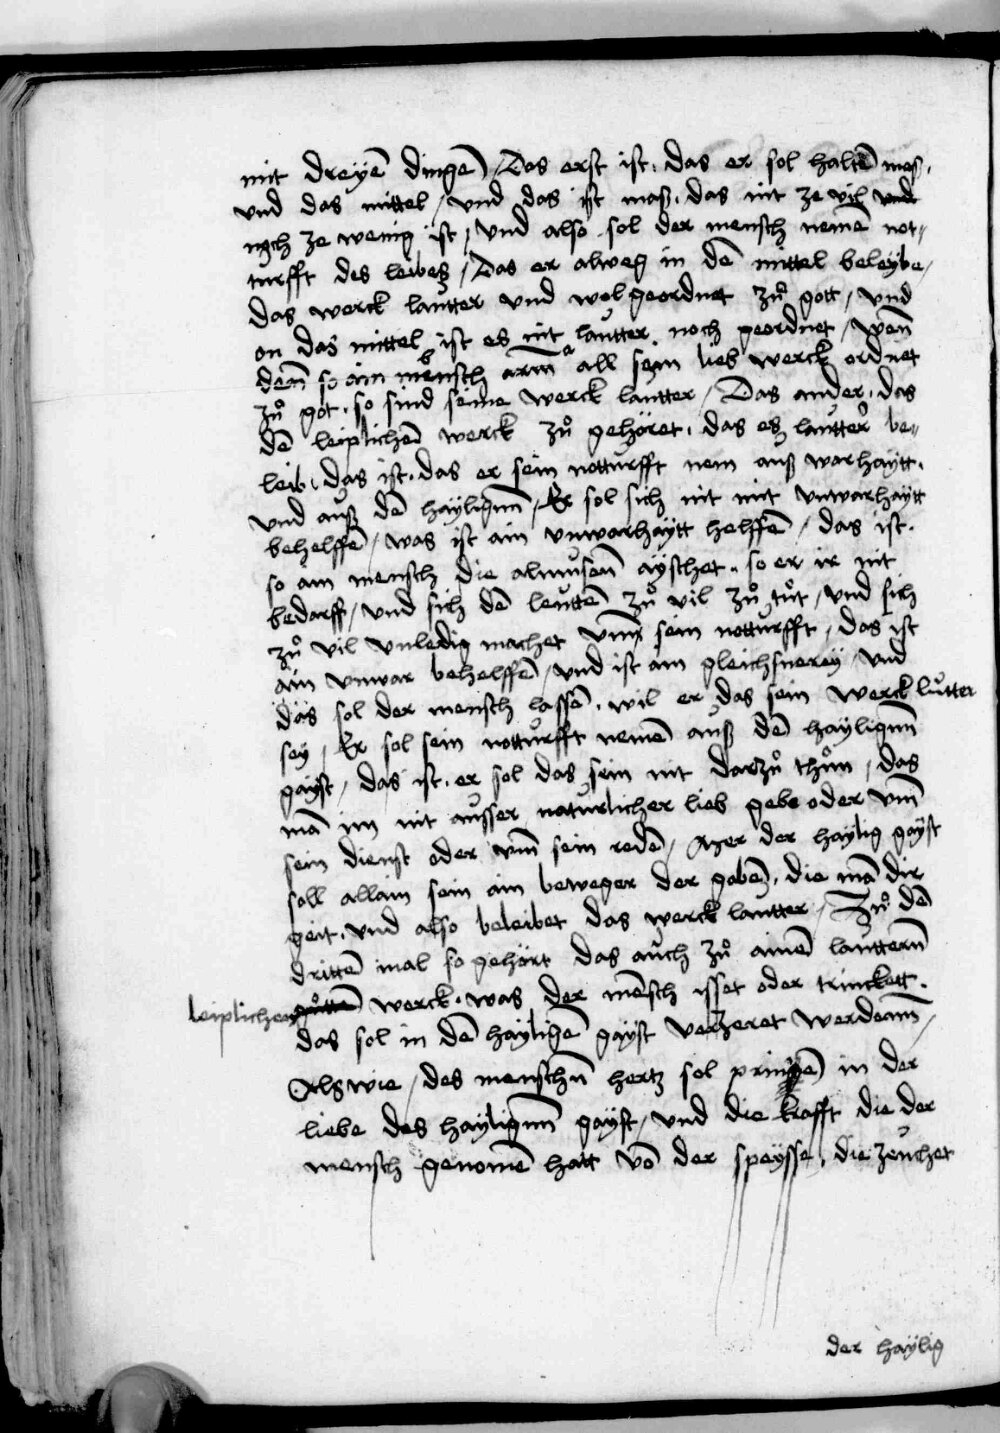 mit dreyē dingē / Das erst ist · das er sol haltē mas ·
vnd das mittel / vnd das ist mass · das nit ze vil vnd
noch ze wenig ist / vnd also sol der mensch nemē not⸗
turfft des leibes / Das er alweg in dē mittel beleybe /
das werck lautter vnd wol geordnet zů gott / vnd
on das mittel ist es nit lautter noch geordnet / wen̄
den̄ so ain mensch all sein lieb werck ordnet
zů got · so sind seine werck lautter / Das ander · das
dē leiplichen̄ werck zů gehöret · das es lautter be⸗
leib · das ist · das er sein notturfft nem auß warhaytt ·
vnd auß dē hayligen̄ / Er sol sich nit mit vnwarhaytt
behelffē / was ist ain vnwarhaytt helffē / das ist ·
so ain mensch die almusen̄ ayschet · so er ir nit
bedarff / vnd sich dē leuttē zů vil zů tůt / vnd sich
zů vil vnledig machet vm̄ sein notturfft / das ist
ain vnwar behelffē / vnd ist ain gleichsnerey / vnd
das sol der mensch lassē · wil er das sein werck lutter
sey / Er sol sein notturfft nemē auß dē hayligen̄
gayst / das ist · er sol das sein nit darzů thůn / das
mā im nit ausser naturlicher lieb gebe oder vm̄
sein dienst oder vm̄ sein redē / Mer der haylig gayst
soll allain sein ain beweger der gabē · die mā dir
geit · vnd also beleibet das werck lautter / Zů dē
drittē mal so gehört das auch zů ainē lauttern̄
leiplichen gůttē werck · was der mēsch isset oder trinckett ·
das sol in dē hayligē gayst verzeret werden̄ /
Als wie / des menschn̄ hertz sol prinnē in der
liebe des hayligen̄ gayst / vnd die krafft die der
mensch genomē hatt vō der speysse · die zeuchet
der haylig